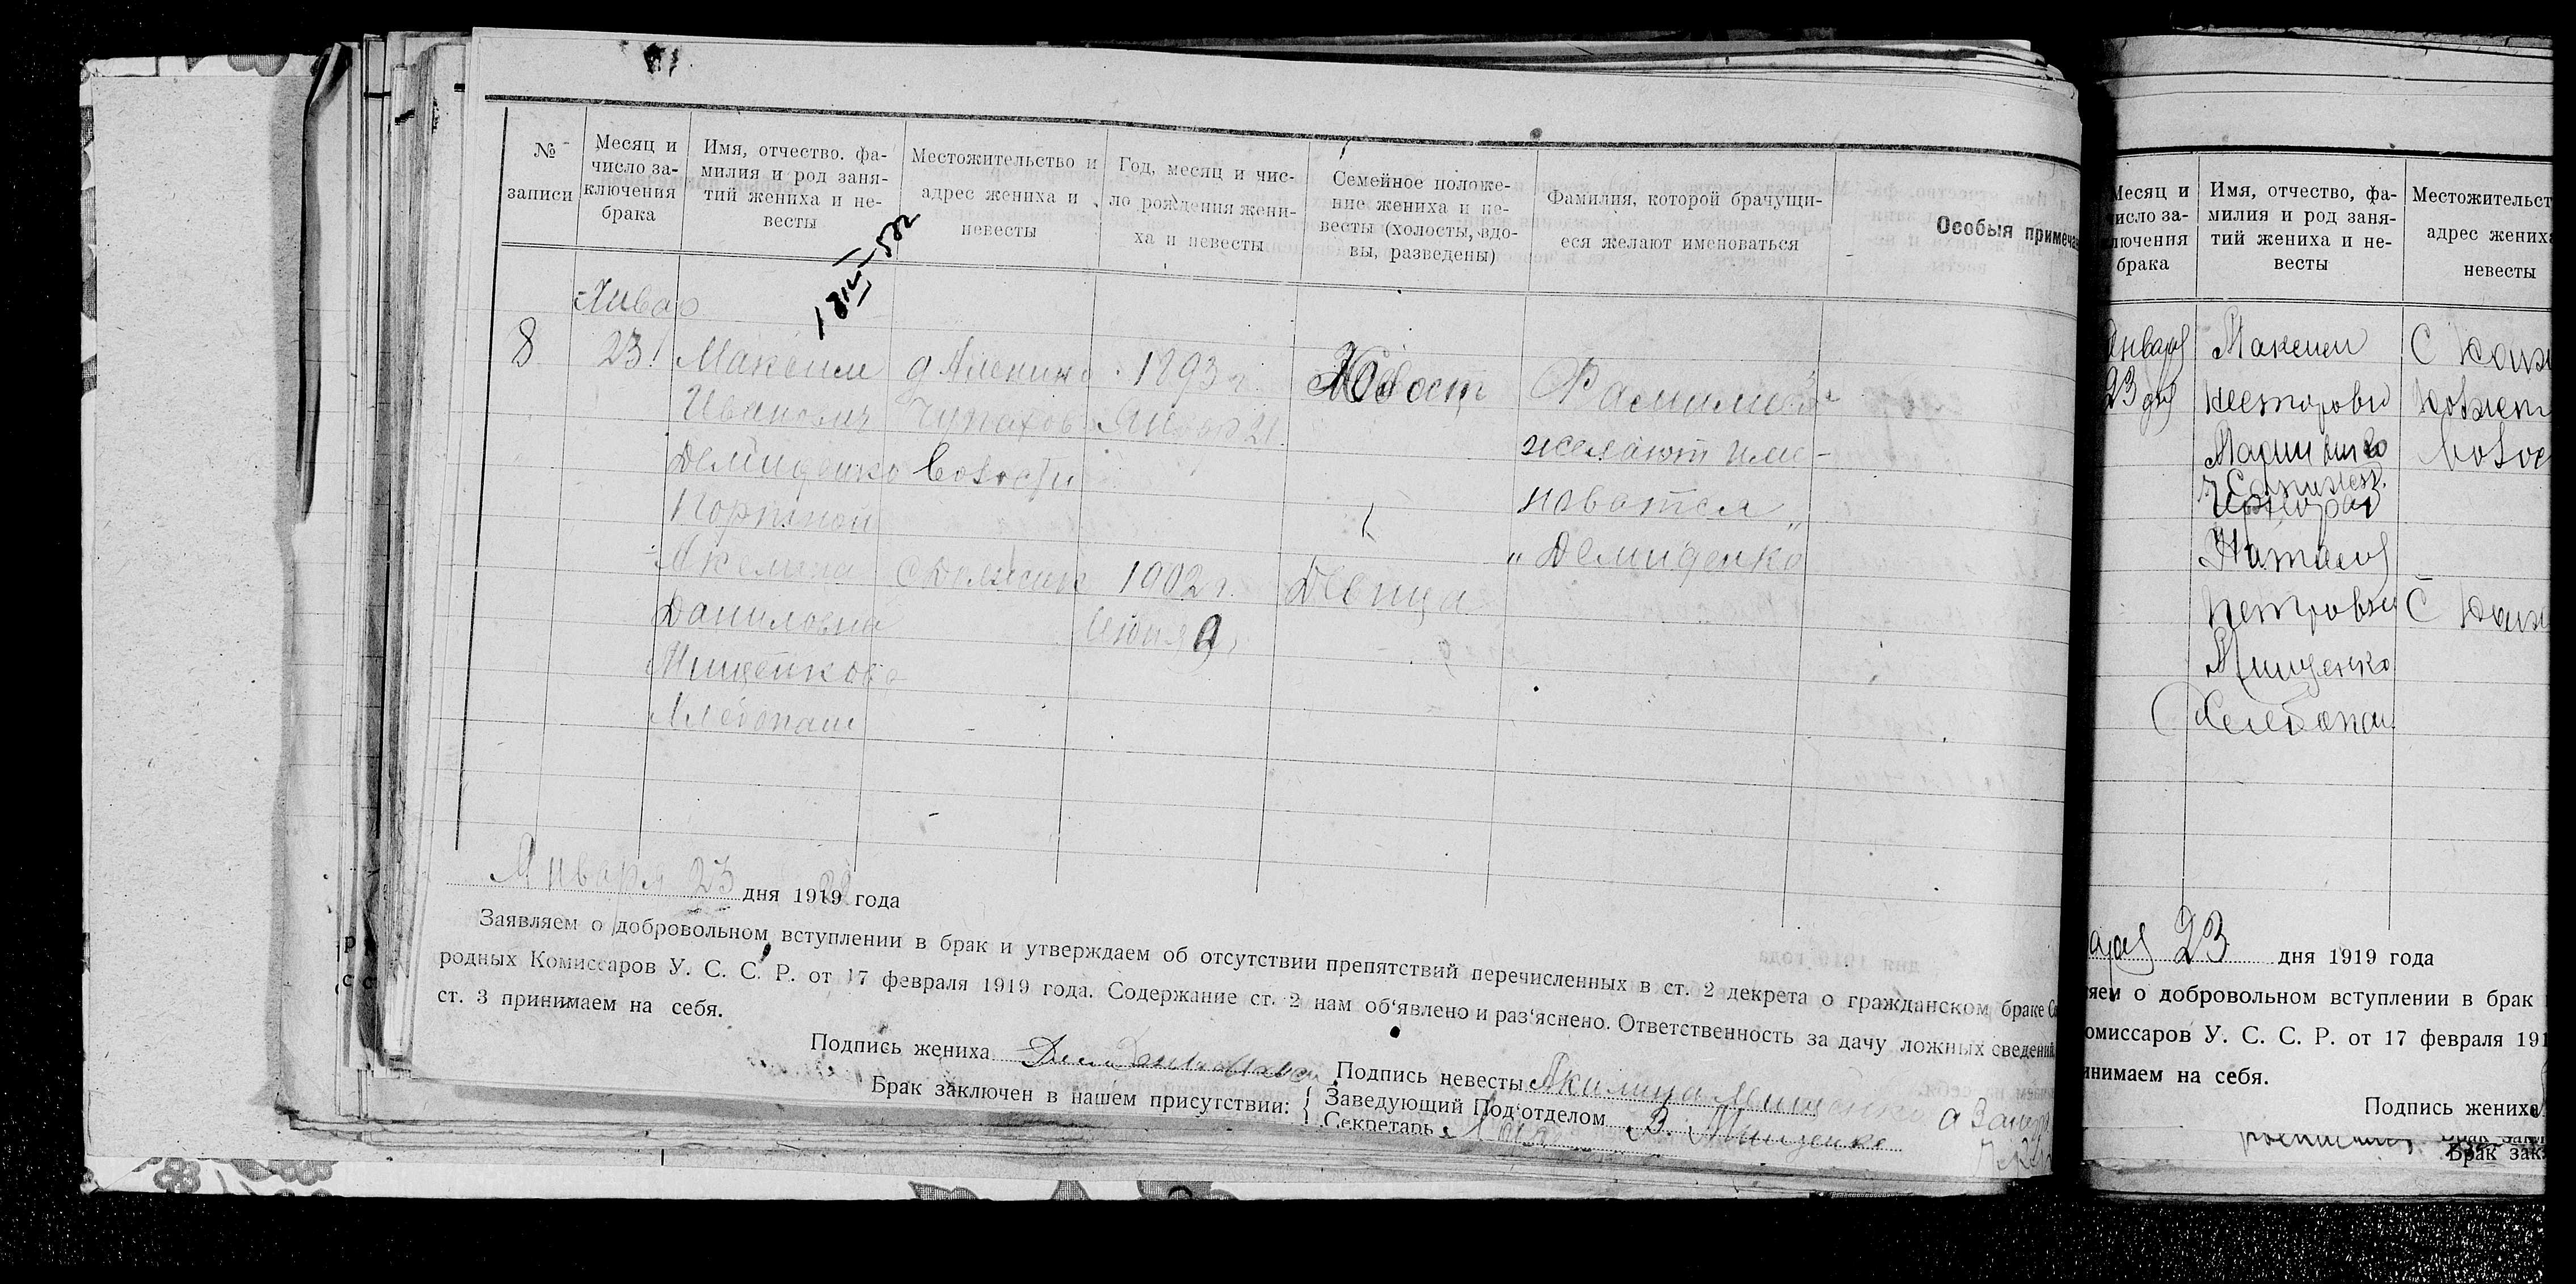 №
записи
Месяц и
число за-
ключения
брака
Имя, отчество. фа-
милия и род заня-
тий жениха и не-
весты
Местожительство и
адрес жениха и
невесты
Год, месяц и чис-
ло рождения жени-
ха и невесты
Семейное положе-
ние жениха и не-
весты (холосты, вдо-
вы, разведены)
Фамилия, которой брачущи-
еся желают именоваться
Особыя примеча
8
Январ
23
Максим
Иванович
Демиденко
Портной
Акелина
Даниловна
Мищенкова
Хлебопаш
волости
1893 г.
Январ 21.
1902 г.
Июня 9
Холост
Девица
Фамилией
желают име-
новатся
„ Демиденко
Января 23 дня 1919 года
Заявляем о добровольном вступлении в брак и утверждаем об отсутствии препятствий перечисленных в ст. 2 декрета о гражданском браке Со
родных Комиссаров У. С. С. Р. от 17 февраля 1919 года. Содержание ст. 2 нам об‘явлено и раз‘яснено. Ответственность за дачу ложных сведений
ст. 3 принимаем на себя.
Подпись жениха
Подпись невесты Акилина Мищенко
Брак заключен в нашем присутствии:
Заведующий Под‘отделом В. Мищенко
Секретарь
Месяц и
число за-
лючения
брака
Имя, отчество, фа-
милия и род заня-
тий жениха и не-
весты
Местожительст
адрес жениха
невесты
Января
23 дня
Максим
Несторови
Наталия
Петровна
Мищенко
Хлебопаш
23 дня 1919 года
яем о добровольном вступлении в брак
омиссаров У. С. С. Р. от 17 февраля 191
инимаем на себя.
Подпись жениха
Брак зак